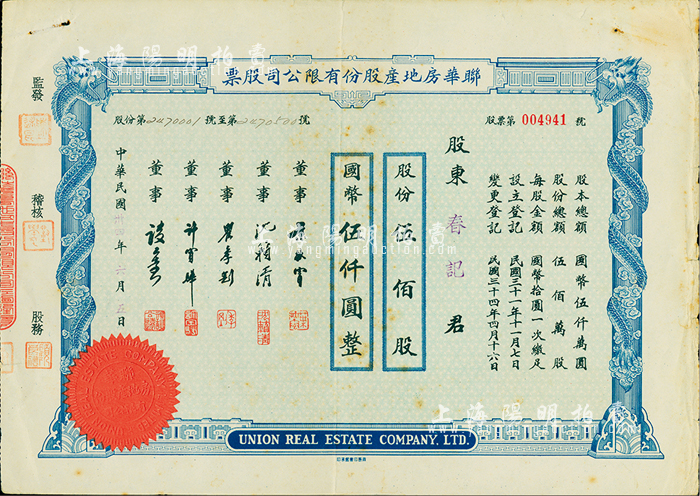 上海陽明拍賣
票股司公限有份股產地房華聯
股份第2470001號至第2470500號
股票第 004941 號
股本總額 國幣伍仟萬圓
股份總額 伍佰萬股
每股金額 國幣拾圓一次繳足
設立登記 民國三十一年十一月七日
變更登記 民國三十四年四月十六日
股東 春記 君
股份 伍佰股
國幣伍仟圓整
董事
董事
董事
董事 許冠群
董事
中華民國卅四年六月五日
監發
稽核
股務
上海陽明拍賣
www.yangmingauction.com
上海陽明拍賣
UNION REAL ESTATE COMPANY, LTD.